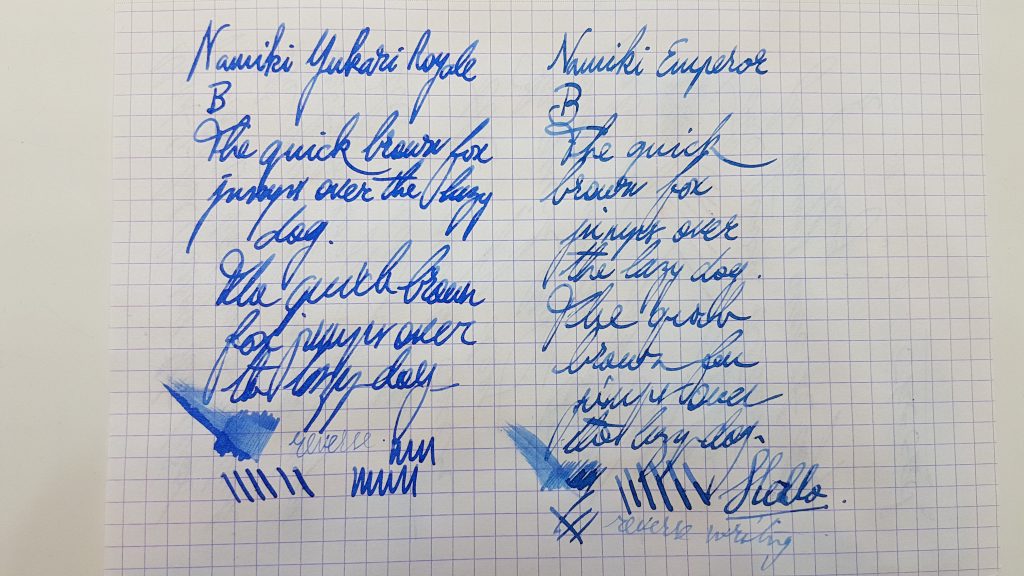 Namiki Yukari Royale
B
The quick brown fox
jumps over the lazy
dog.
The quick brown
fox jumps over
the lazy dog
reverse
Namiki Emperor
B
The quick
brown fox
jumps over
the lazy dog.
The quick
brown fox
jumps over
the lazy dog.
Hello.
reverse writing